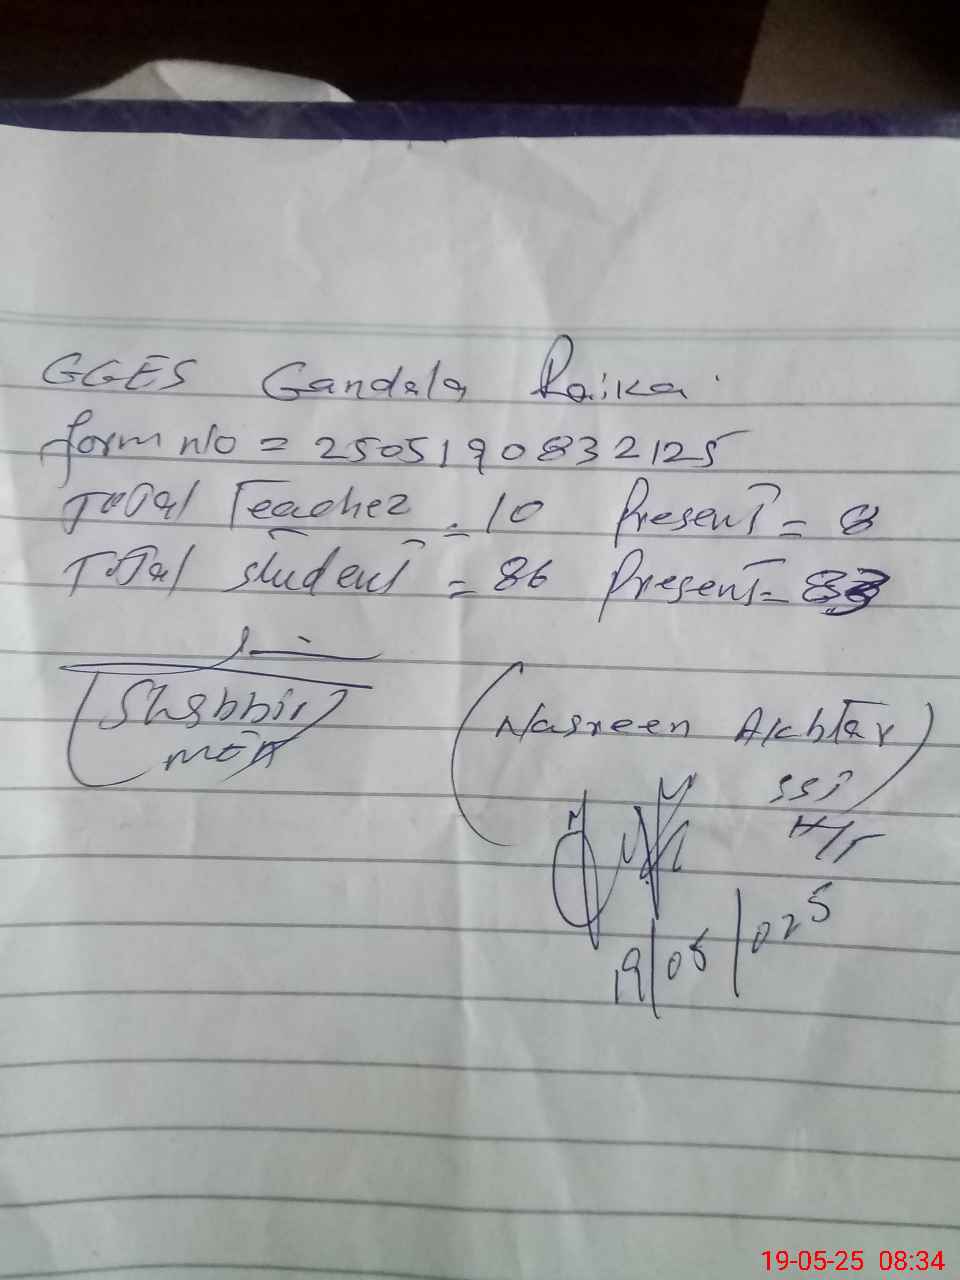 GGES Gandala Raika
form no = 2505190832125
Total Teacher = 10 Present = 8
Total student = 86 Present = 83
(Shabbir)
MEA
(Nasreen Akhtar)
SST
H/T
19/05/025
19-05-25 08:34